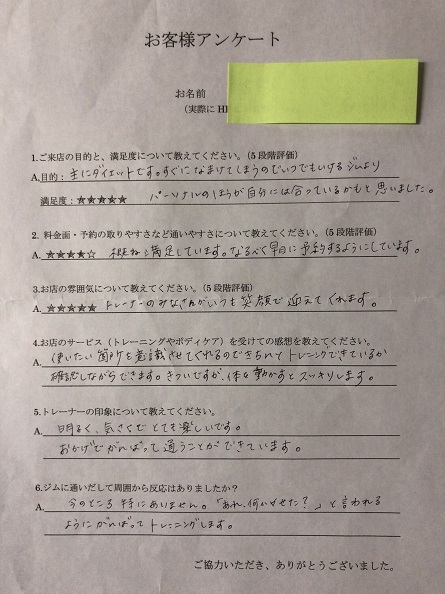 お客様アンケート
お名前
(実際に HP
1.ご来店の目的と、満足度について教えてください。(5段階評価)
A.目的：主にダイエットです。すぐになまけてしまうのでいつでもいけるジムより
満足度：★★★★★ パーソナルのほうが自分には合っているかもと思いました。
2. 料金面・予約の取りやすさなど通いやすさについて教えてください。(5段階評価)
A.★★★★☆ 概ね満足しています。なるべく早目に予約するようにしています。
3.お店の雰囲気について教えてください。(5段階評価)
A.★★★★★ トレーナーのみなさんがいつも笑顔で迎えてくれます。
4.お店のサービス（トレーニングやボディケア）を受けての感想を教えてください。
A. 使いたい箇所を意識させてくれるのできちんとトレーニングできているか
確認しながらできます。きついですが、体を動かすとスッキリします。
5．トレーナーの印象について教えてください。
A. 明るく、気さくでとても楽しいです。
おかげでがんばって通うことができています。
6.ジムに通いだして周囲から反応はありましたか？
A. 今のところ特にありません。「あれ、何かやせた？」と言われる
ようにがんばってトレーニングします。
ご協力いただき、ありがとうございました。